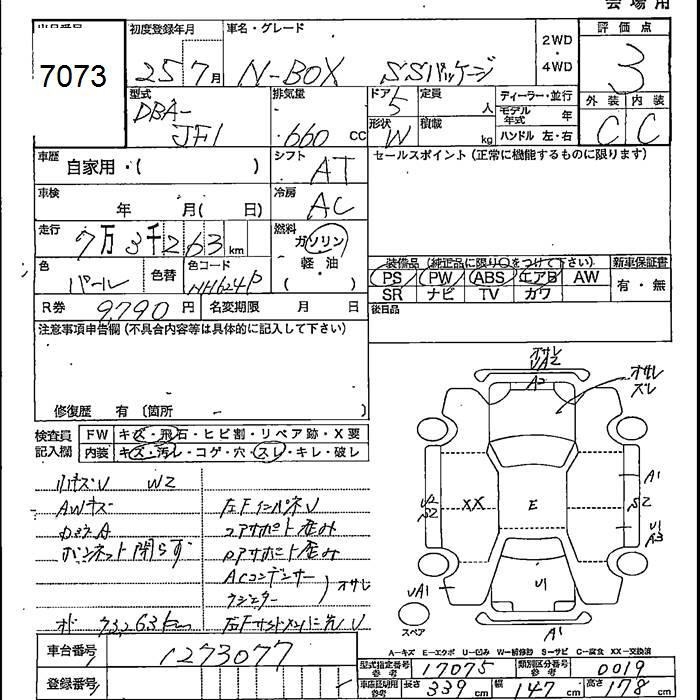 会場用
出品番号
7073
初度登録年月
25 7月
車名・グレード
N-BOX SSパッケージ
2WD
・
4WD
評価点
3
外装 内装
C C
型式
DBA-
JF1
排気量
660 cc
ドア 5
形状 W
定員 人
積載 kg
ディーラー・並行
モデル年式 年
ハンドル 左・右
車歴 自家用・( )
シフト AT
セールスポイント (正常に機能するものに限ります)
車検 年 月( 日)
冷房 AC
走行 7万3千263km
燃料
ガソリン
・
軽・油
( )
色 パール
色替
色コード NH624P
装備品 (純正品に限り○をつけて下さい)
PS PW ABS エアB AW
SR ナビ TV カワ
新車保証書
有・無
R券 9,790円
名変期限 月 日
後日品
注意事項申告欄 (不具合内容等は具体的に記入して下さい)
修復歴 有 (箇所 )
検査員記入欄
FW キズ・飛石・ヒビ割・リペア跡・X要
内装 キズ・汚レ・コゲ・穴・スレ・キレ・破レ
小キズU W2
AWキズ
ガラスA
ボンネット閉らず
オド 73,263km
左FインパネU
コアサポート歪み
Pアサポート歪み
ACコンデンサー
ラジエター
オサレ
オサレ
UA2
A2
オサレ
ズレ
A1
U2
S2
XX
E
S2
U1
A3
UA1
U1
A1
スペア
A-キズ E-エクボ U-凹み W-補修跡 S-サビ C-腐食 XX-交換済
車台番号 1273077
登録番号
型式指定番号 参考 17075
類別区分番号 参考 0019
車庫証明用 参考 長さ 339cm 幅 147cm 高さ 178cm